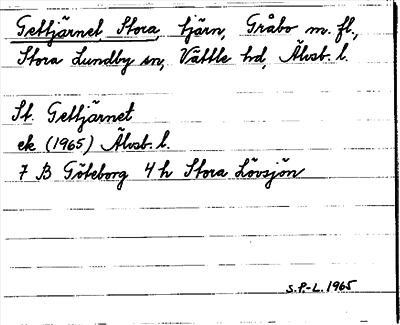 Gettjärnet, Stora, tjärn, Gråbo m. fl.,
Stora Lundby sn, Vättle hd, Älvsb. l.
St. Gettjärnet
ek (1965) Älvsb. l.
7 B Göteborg 4 h Stora Lövsjön
S.P.-L. 1965